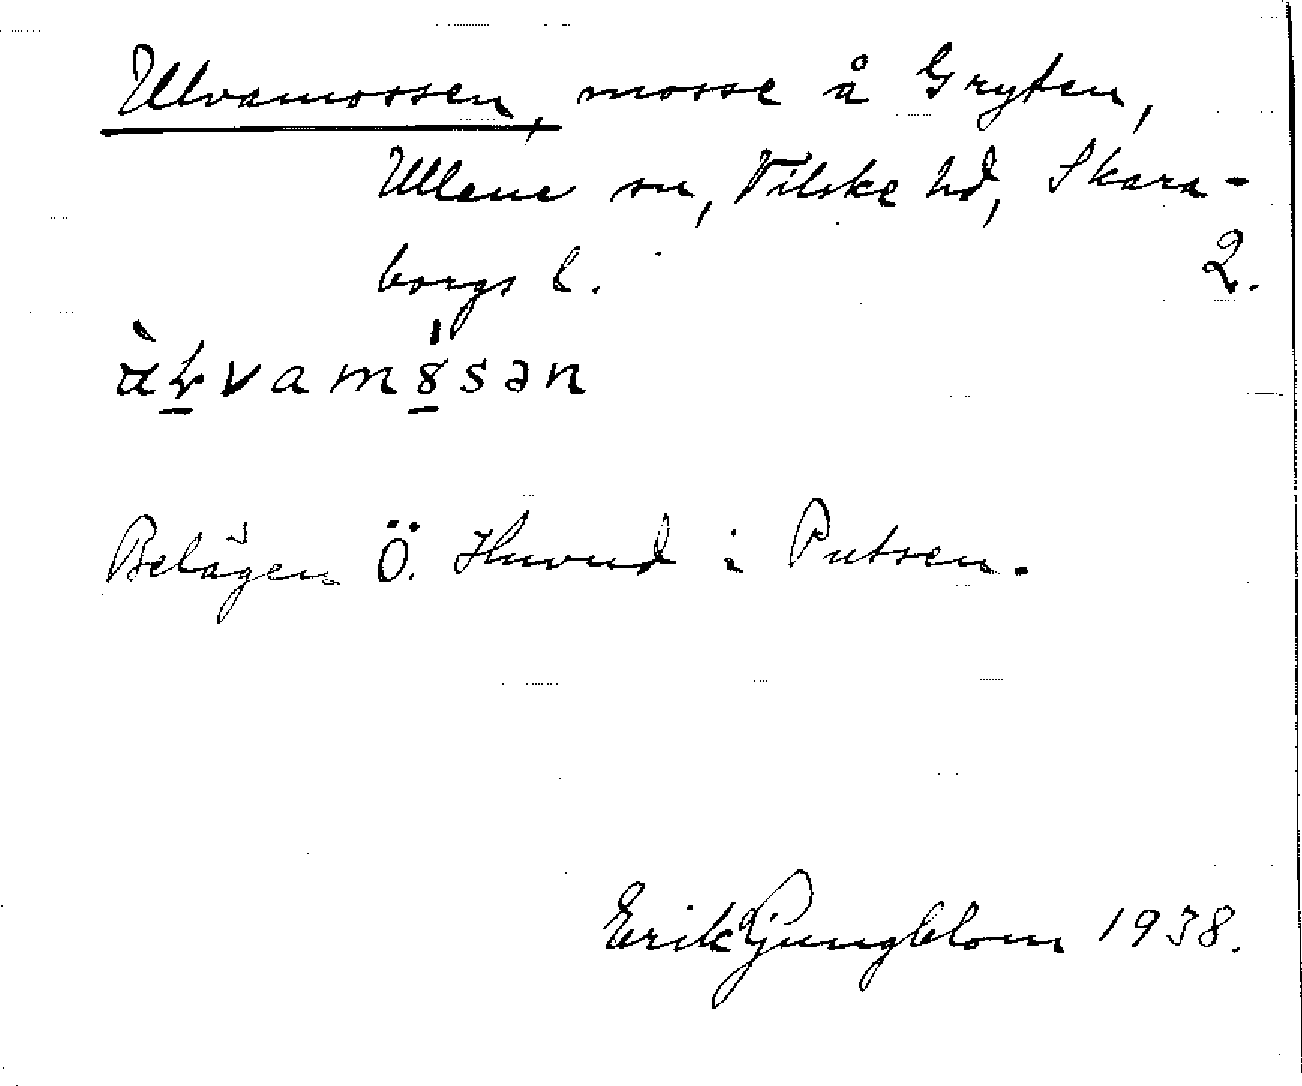 Ulvamossen, mosse å Gryten,
Ullene sn, Vilske hd, Skara-
borgs l. 2.
vamósən
Belägen Ö. Huvud i Putsen.
Erik Ljungblom 1938.